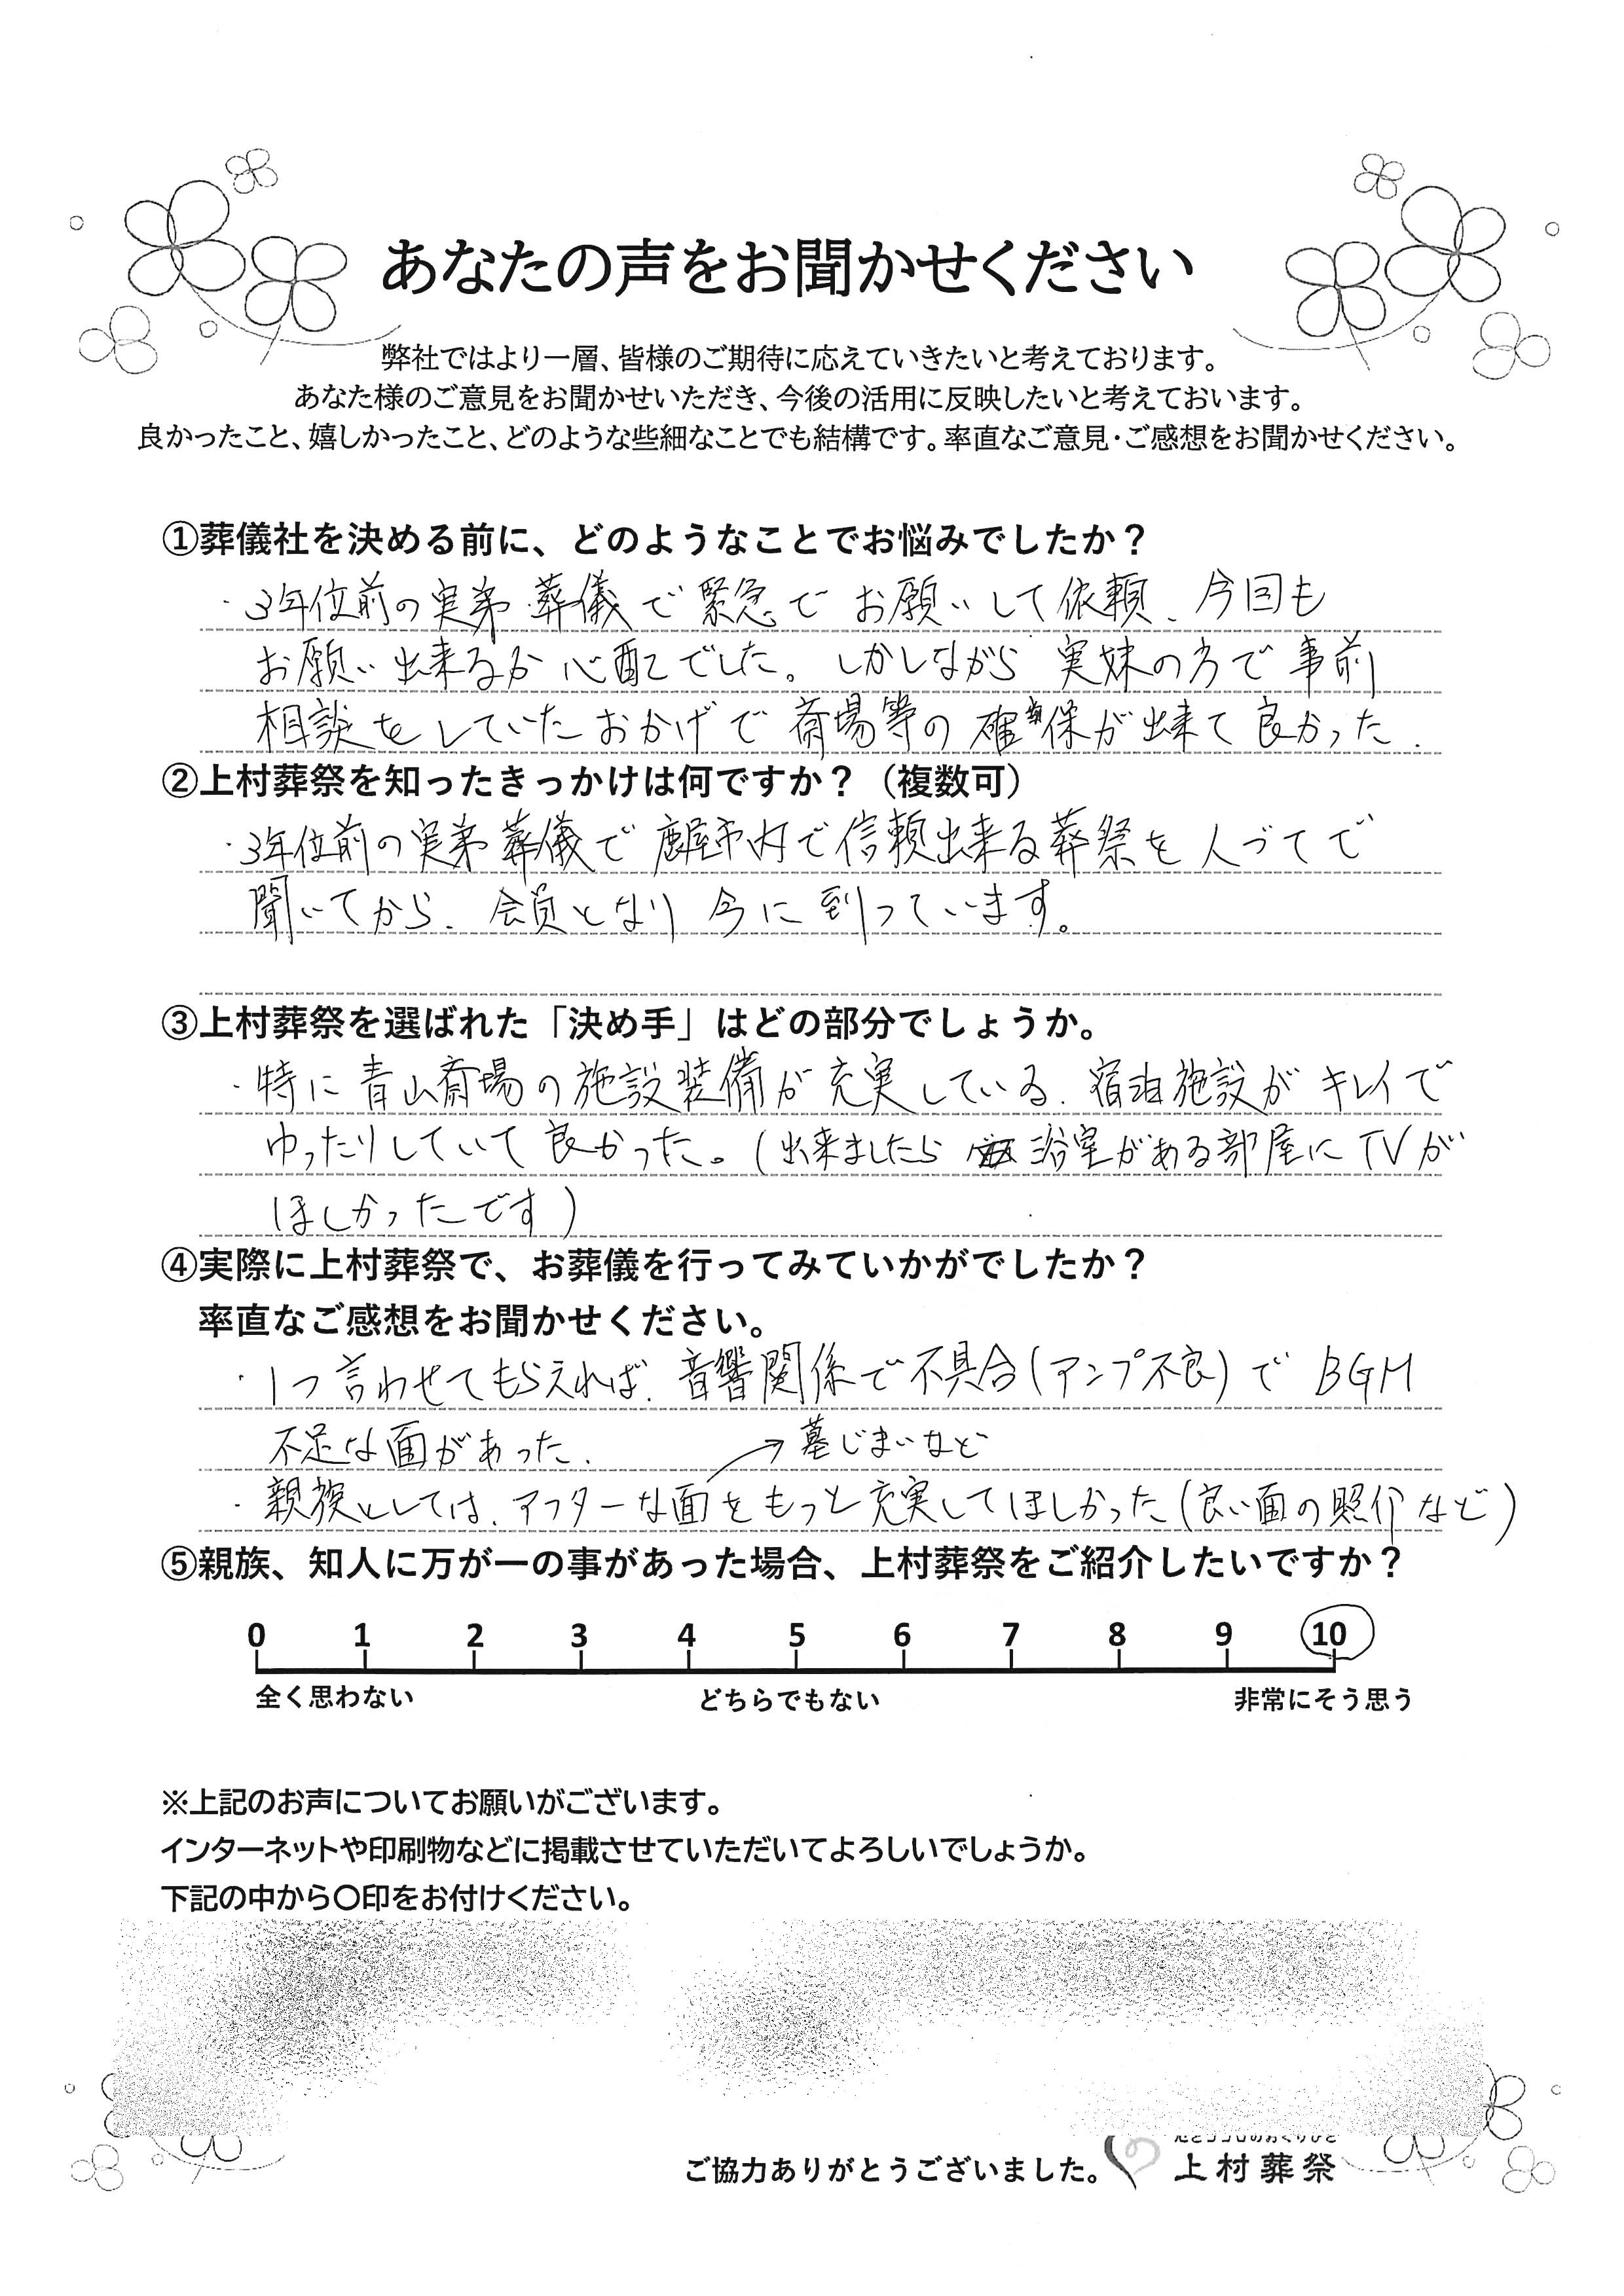 あなたの声をお聞かせください
弊社ではより一層、皆様のご期待に応えていきたいと考えております。
あなた様のご意見をお聞かせいただき、今後の活用に反映したいと考えておいます。
良かったこと、嬉しかったこと、どのような些細なことでも結構です。率直なご意見・ご感想をお聞かせください。
①葬儀社を決める前に、どのようなことでお悩みでしたか？
・3年位前の実弟葬儀で緊急でお願いして依頼、今回も
お願い出来るか心配でした。しかしながら実妹の方で事前
相談をしていたおかげで斎場等の確保が出来て良かった.
②上村葬祭を知ったきっかけは何ですか？（複数可）
・3年位前の実弟葬儀で鹿屋市内で信頼出来る葬祭を人づてで
聞いてから、会員となり今に到っています。
③上村葬祭を選ばれた「決め手」はどの部分でしょうか。
・特に青山斎場の施設装備が充実している、宿泊施設がキレイで
ゆったりしていて良かった。(出来ましたら浴室がある部屋にTVが
ほしかったです)
④実際に上村葬祭で、お葬儀を行ってみていかがでしたか？
率直なご感想をお聞かせください。
・1つ言わせてもらえれば、音響関係で不具合(アンプ不良)でBGM
不足な面があった.
→墓じまいなど
・親族としては、アフターな面をもっと充実してほしかった(良い面の照介など)
⑤親族、知人に万が一の事があった場合、上村葬祭をご紹介したいですか？
0 1 2 3 4 5 6 7 8 9 10
全く思わない どちらでもない 非常にそう思う
※上記のお声についてお願いがございます。
インターネットや印刷物などに掲載させていただいてよろしいでしょうか。
下記の中から〇印をお付けください。
ご協力ありがとうございました。
上村葬祭